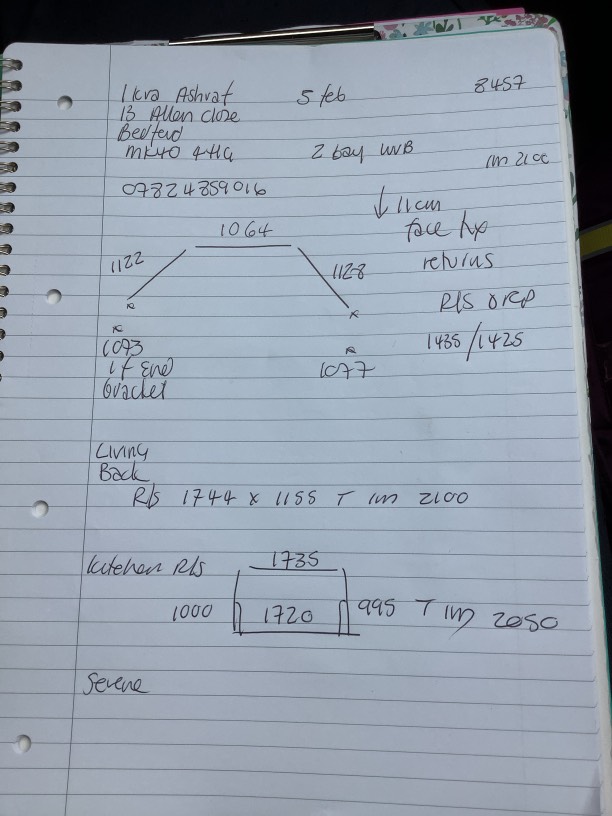 Ikra Ashraf 5 feb 8457
13 Allen close
Bedford
MK40 4HG 2 bay WB 1m 2100
07824859016
↓ 11cm
1064 face fix
1122 1128 returns
x x R/S drop
x x 1435/1425
1093 1077
1 f End
bracket
Living
Back
R/S 1744 x 1155 T 1m 2100
kitchen R/s 1735
1000 1720 995 T 1m 2050
Serene